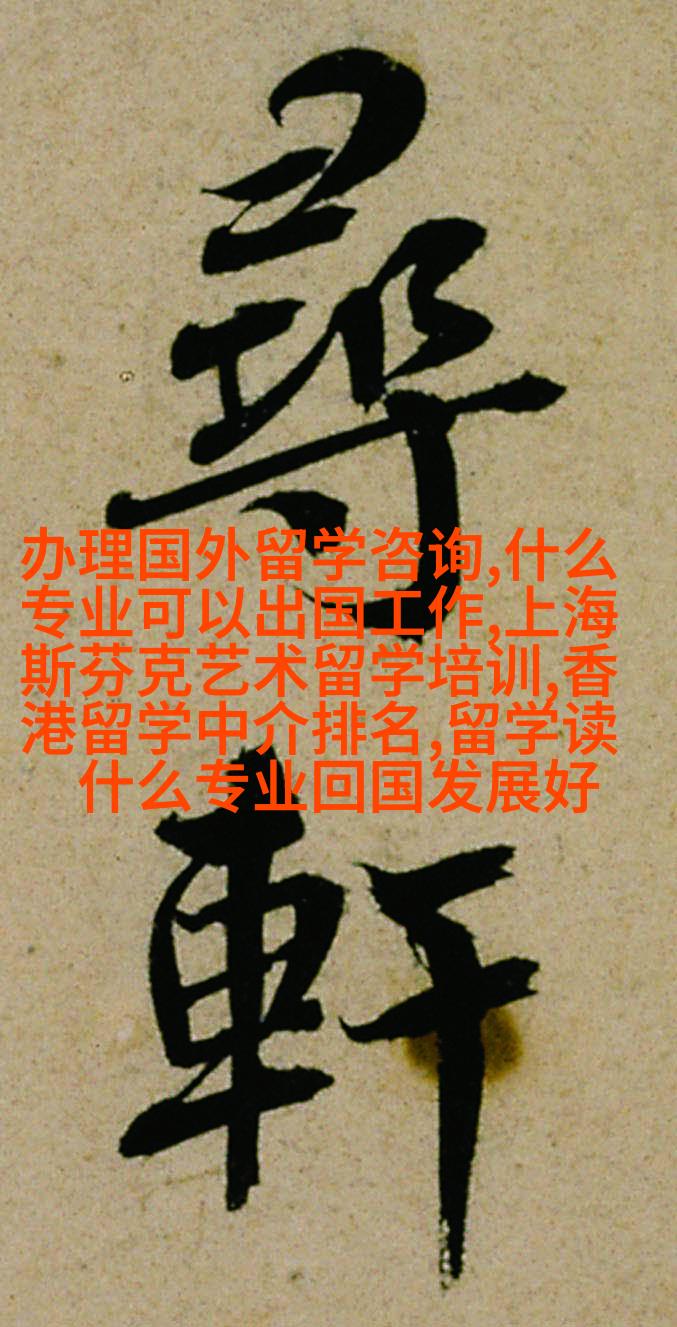 尋
軒
办理国外留学咨询,什么
专业可以出国工作,上海
斯芬克艺术留学培训,香
港留学中介排名,留学读
什么专业回国发展好